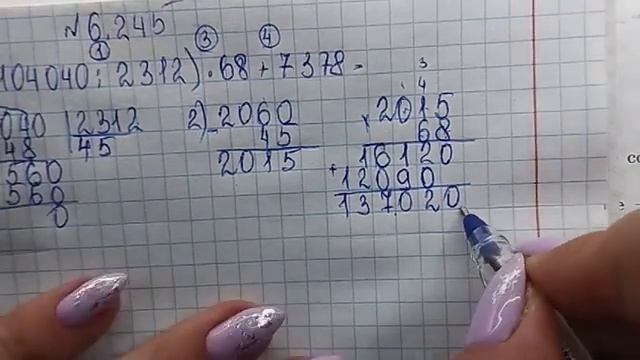 № 6.245
① ③ ④
104040 : 2312) · 68 + 7378 =
040 | 2312
48 | 45
560
560
0
2) - 2060
45
2015
3
4
× 2015
68
+ 16120
12090
137020